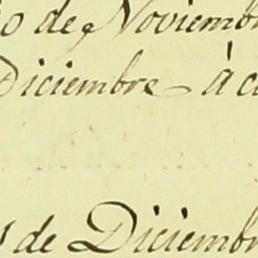 0 de Noviemb
Diciembre - à c
de Diciemb